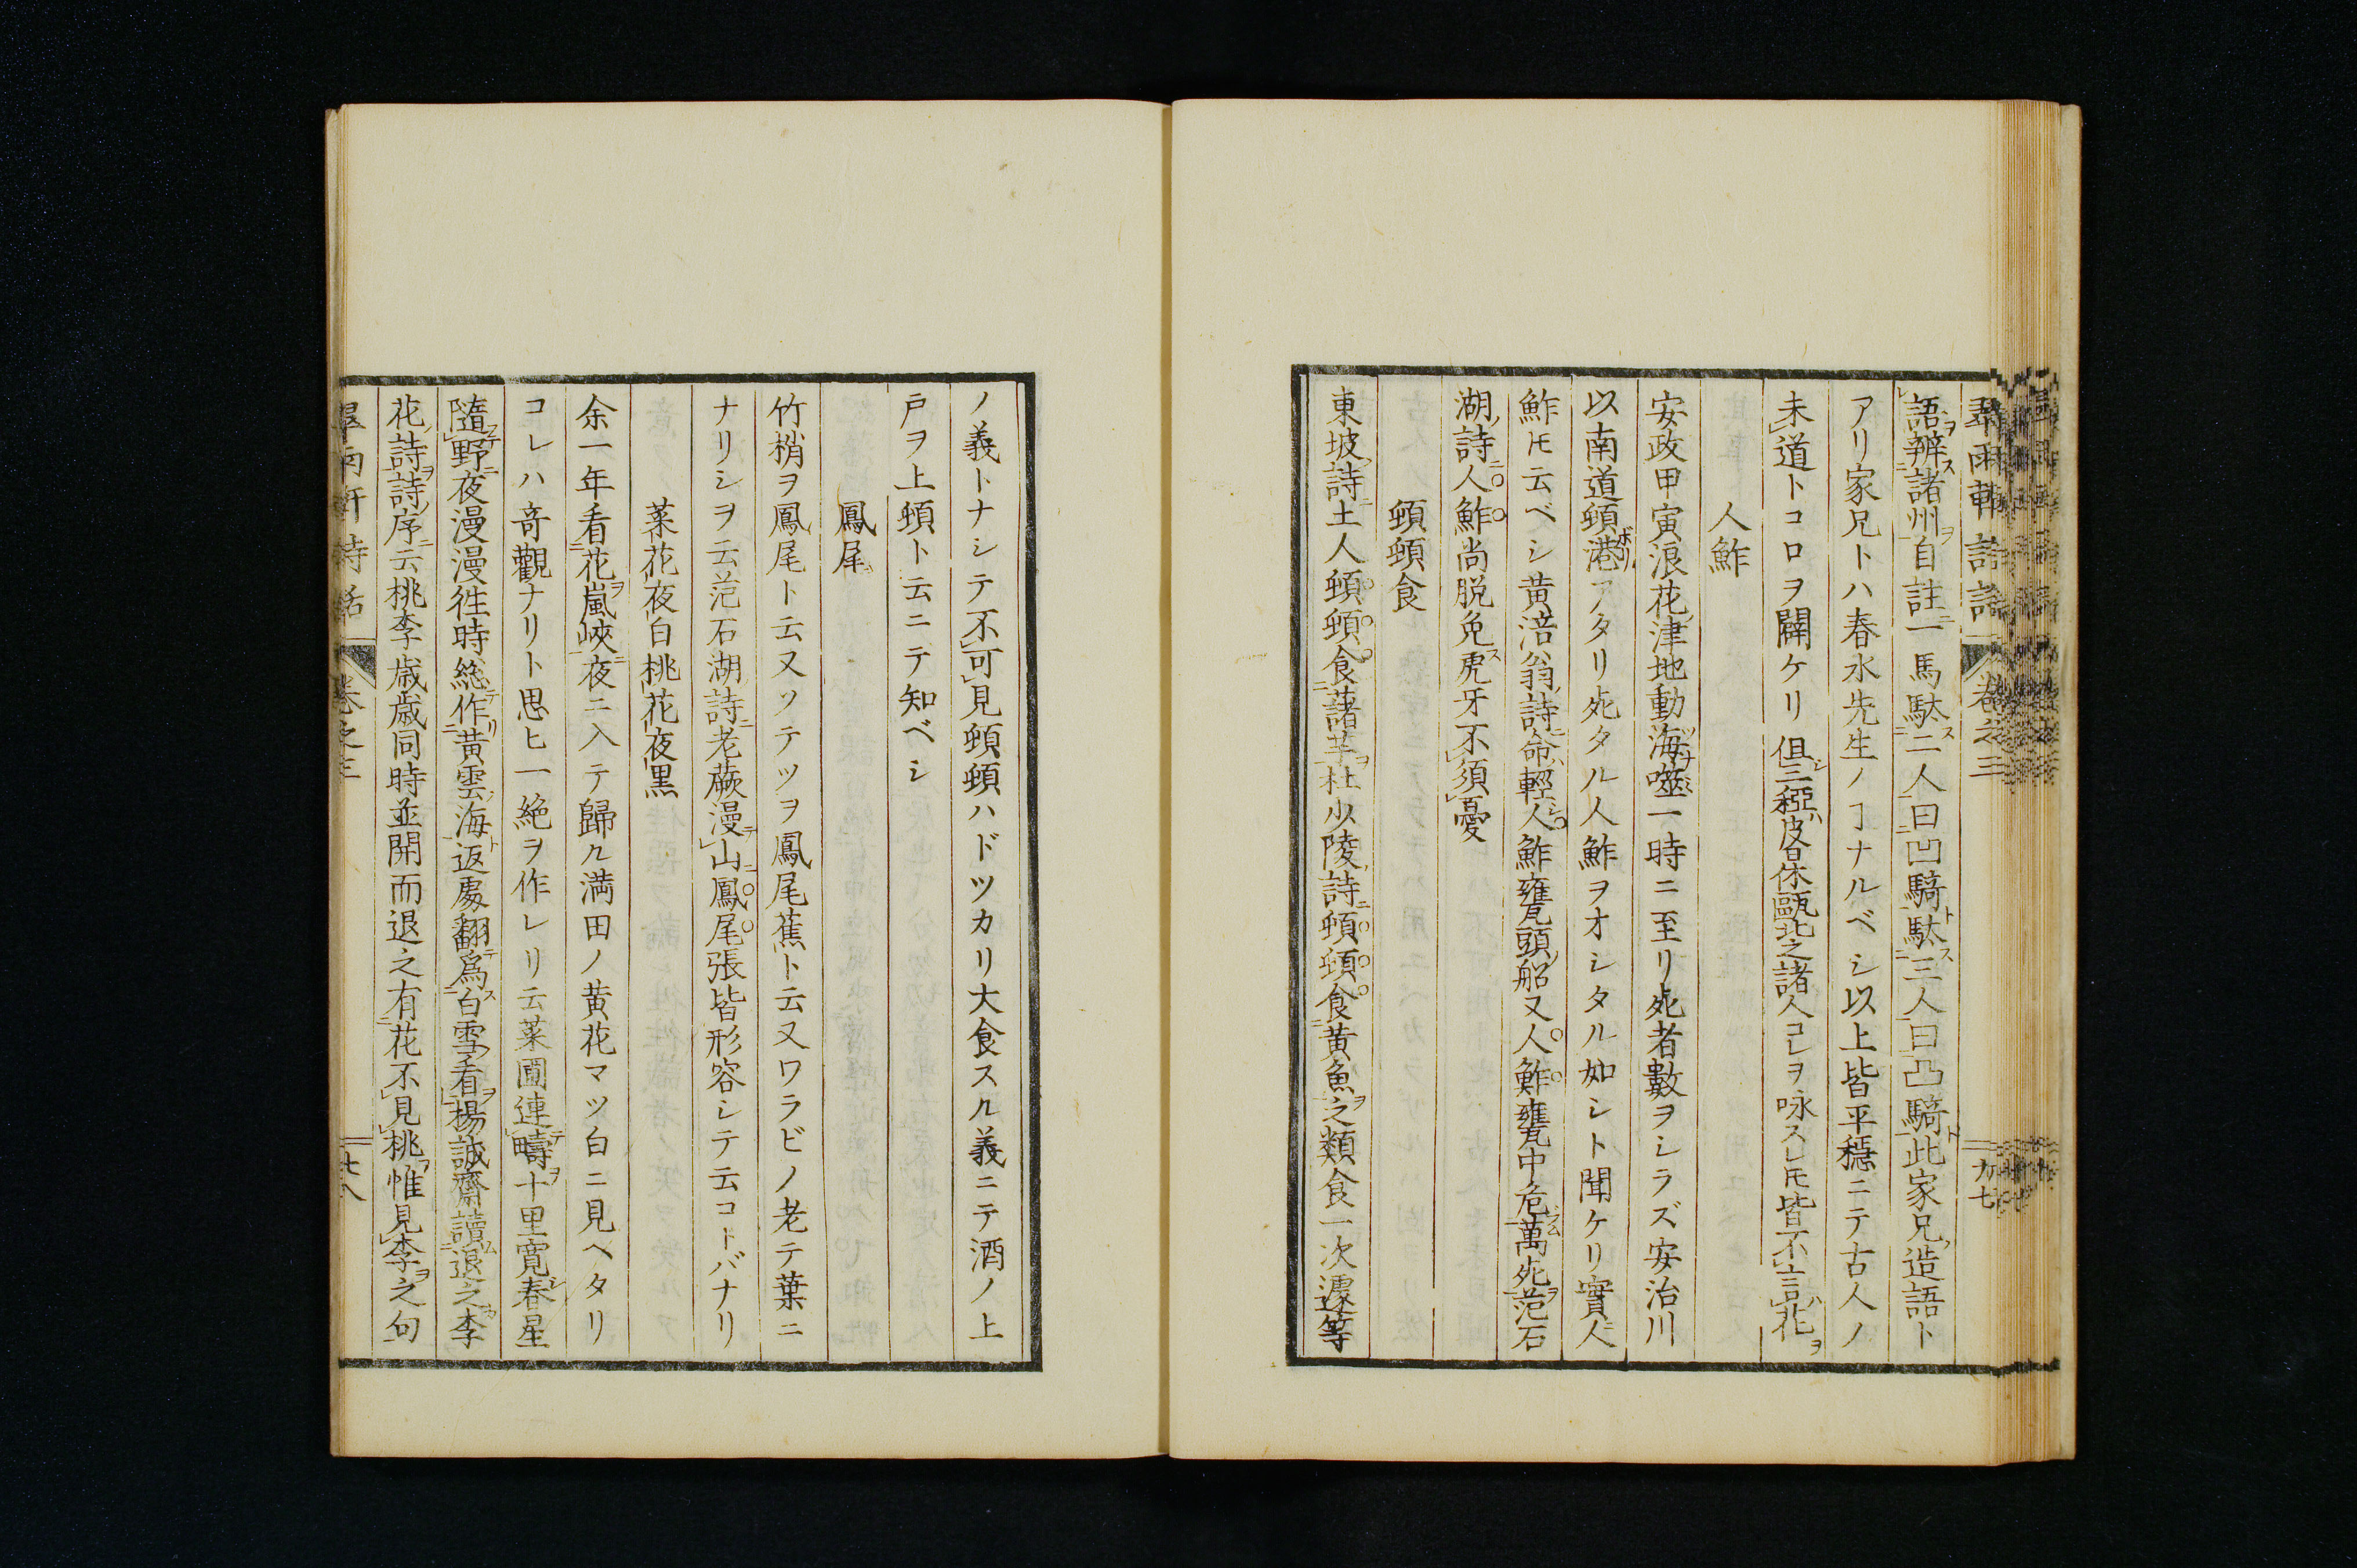 語辨諸州自註一馬駄二人曰凹騎駄三人曰凸騎此家兄造語ト
アリ家兄トハ春水先生ノヿナルベシ以上皆平穩ニテ古人ノ
未道トコロヲ闢ケリ但三稏皮昆休甌北之諸人コレヲ咏スレ𪜈皆不言花
人鮓
安政甲寅浪花津地動海嘯一時ニ至リ死者數ヲシラズ安治川
以南道頓港アタリ死タル人鮓ヲオシタル如シト聞ケリ實人
鮓𪜈云ベシ黄涪翁詩命輕人鮓甕頭船又人鮓甕中危萬死范石
湖詩人鮓尚脱免虎牙不須憂
頓頓食
東坡詩土人頓頓食藷芋杜少陵詩頓頓食黄魚之類食一次遽等
ノ義トナシテ不可見頓頓ハドツカリ大食スル義ニテ酒ノ上
戸ヲ上頓ト云ニテ知ベシ
鳳尾
竹梢ヲ鳳尾ト云又ソテツヲ鳳尾蕉ト云又ワラビノ老テ葉ニ
ナリシヲ云范石湖詩老蕨漫山鳳尾張皆形容シテ云コトバナリ
菜花夜白桃花夜黒
余一年看花嵐峽夜ニ入テ歸ル満田ノ黄花マツ白ニ見ヘタリ
コレハ奇觀ナリト思ヒ一絶ヲ作レリ云菜圃連疇十里寛春星
隨野夜漫漫徃時総作黄雲海返處翻爲白雪看楊誠齋讀退之李
花詩詩序云桃李歳歳同時並開而退之有花不見桃惟見李之句
卷之三